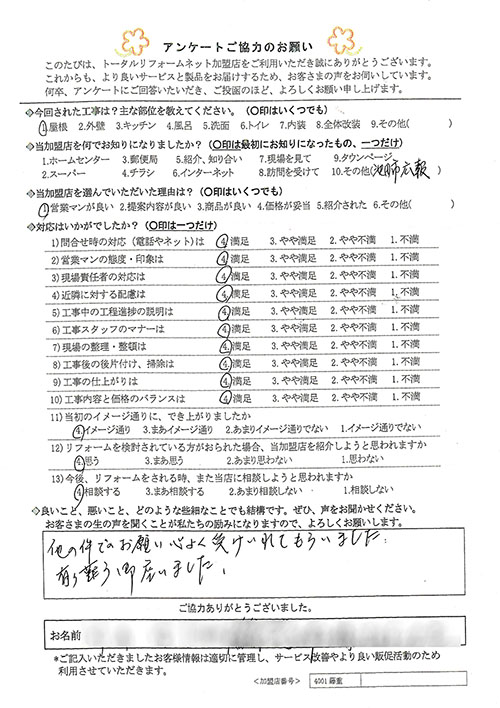 アンケートご協力のお願い
このたびは、トータルリフォームネット加盟店をご利用いただき誠にありがとうございます。
これからも、より良いサービスと製品をお届けするため、お客さまの声をお伺いしています。
何卒、アンケートにご回答いただき、ご投函のほど、よろしくお願い申し上げます。
◇今回された工事は？主な部位を教えてください。（〇印はいくつでも）
1.屋根 2.外壁 3.キッチン 4.風呂 5.洗面 6.トイレ 7.内装 8.全体改装 9.その他( )
◇当加盟店を何でお知りになりましたか？（〇印は最初にお知りになったもの、一つだけ）
1.ホームセンター 3.郵便局 5.紹介、知り合い 7.現場を見て 9.タウンページ
2.スーパー 4.チラシ 6.インターネット 8.訪問を受けて 10.その他( 市広報 )
◇当加盟店を選んでいただいた理由は？（〇印はいくつでも）
1.営業マンが良い 2.提案内容が良い 3.商品が良い 4.価格が妥当 5.紹介された 6.その他( )
◇対応はいかがでしたか？（〇印は一つだけ）
1)問合せ時の対応（電話やネット）は 4.満足 3.やや満足 2.やや不満 1.不満
2)営業マンの態度・印象は 4.満足 3.やや満足 2.やや不満 1.不満
3)現場責任者の対応は 4.満足 3.やや満足 2.やや不満 1.不満
4)近隣に対する配慮は 4.満足 3.やや満足 2.やや不満 1.不満
5)工事中の工程進捗の説明は 4.満足 3.やや満足 2.やや不満 1.不満
6)工事スタッフのマナーは 4.満足 3.やや満足 2.やや不満 1.不満
7)現場の整理・整頓は 4.満足 3.やや満足 2.やや不満 1.不満
8)工事後の後片付け、掃除は 4.満足 3.やや満足 2.やや不満 1.不満
9)工事の仕上がりは 4.満足 3.やや満足 2.やや不満 1.不満
10)工事内容と価格のバランスは 4.満足 3.やや満足 2.やや不満 1.不満
11)当初のイメージ通りに、でき上がりましたか
4.イメージ通り 3.まあイメージ通り 2.あまりイメージ通りでない 1.イメージ通りでない
12)リフォームを検討されている方がおられた場合、当加盟店を紹介しようと思われますか
4.思う 3.まあ思う 2.あまり思わない 1.思わない
13)今後、リフォームをされる時、また当店に相談しようと思われますか
4.相談する 3.まあ相談する 2.あまり相談しない 1.相談しない
◇良いこと、悪いこと、どのような些細なことでも結構です。ぜひ、声をお聞かせください。
お客さまの生の声を聞くことが私たちの励みになりますので、よろしくお願いします。
他の件でのお願い心よく受けいれてもらいました。
有り難う御座いました。
ご協力ありがとうございました。
お名前
*ご記入いただきましたお客様情報は適切に管理し、サービス改善やより良い販促活動のため
利用させていただきます。
<加盟店番号> 4001 藤重